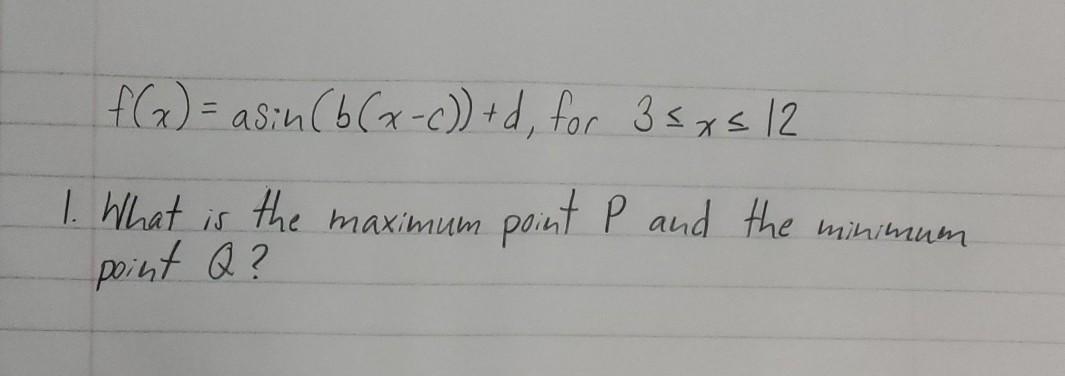 f(x) = asin(b(x-c)) + d, for 3 ≤ x ≤ 12
1. What is the maximum point P and the minimum
point Q?